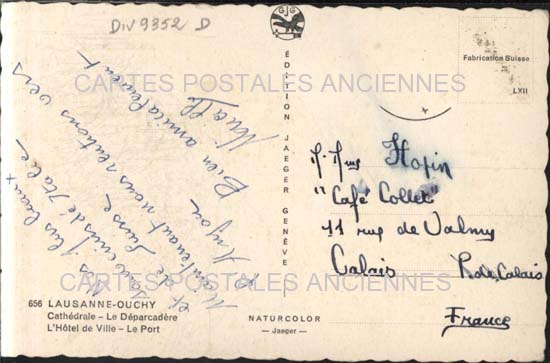 DIV 9352 D
GJG
CARTES POSTALES ANCIENNES
Nos plus beaux
souvenirs d'Italie
et de Suisse
Maintenant nous rentrons vers
Bien amicalement
ÉDITION JAEGER GENÈVE
Fabrication Suisse
LXII
"Café Collet"
11 rue de Valmy
Calais P. de Calais
France
CARTES POSTALES ANCIENNES
656 LAUSANNE-OUCHY
Cathédrale – Le Déparcadère
L'Hôtel de Ville – Le Port
NATURCOLOR
— Jaeger —